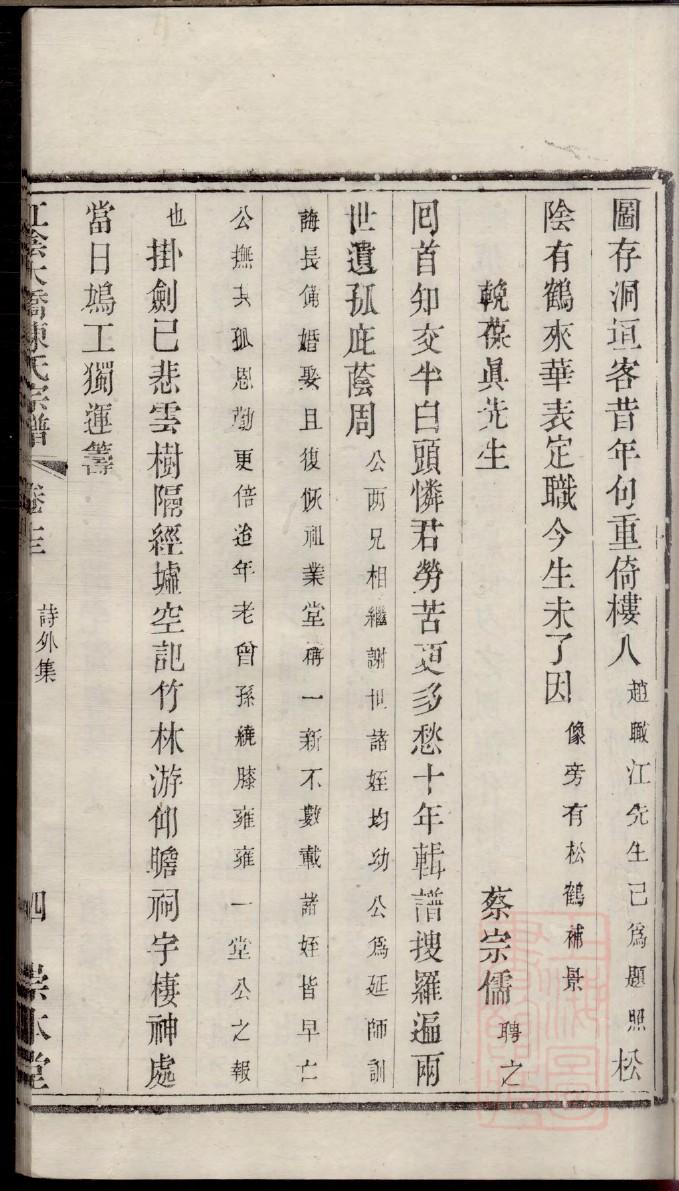 圖存洞垣客昔年句重倚樓人趙職江先生已爲題照松
陰有鶴來華表定職今生未了因像旁有松鶴補景
輓葆眞先生 蔡宗儒聘之
回首知交半白頭憐君勞苦更多愁十年輯譜搜羅遍兩
世遺孤庇蔭周公两兄相繼謝世諸姪均幼公爲延師訓
誨長備婚娶且復恢祖業堂構一新不數載諸姪皆早亡
公撫其孤恩勤更倍迨年老曾孫繞膝雍雍一堂公之報
也掛劍已悲雲樹隔經墟空記竹林游仰瞻祠宇棲神處
當日鳩工獨運籌
江陰大橋陳氏宗譜 卷十三 詩外集 四 崇本堂